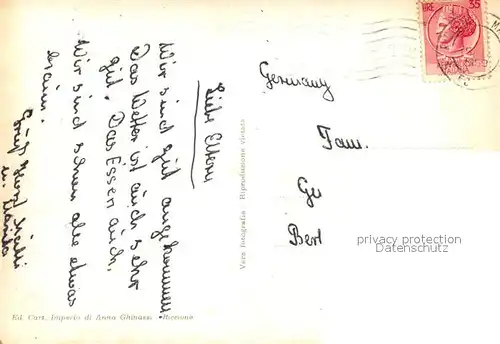 Liebe Eltern
Wir sind gut angekommen.
Das Wetter ist auch sehr
gut. Das Essen auch.
Wir sind schon alle etwas
braun.
Gruß Horst
u.
Vera fotografia - Riproduzione vietata
Ed. Cart. Imperio di Anna Ghinassi - Riccione
Germany
Fam.
Ge
Berl
privacy protection
(Datenschutz)
LIRE 35